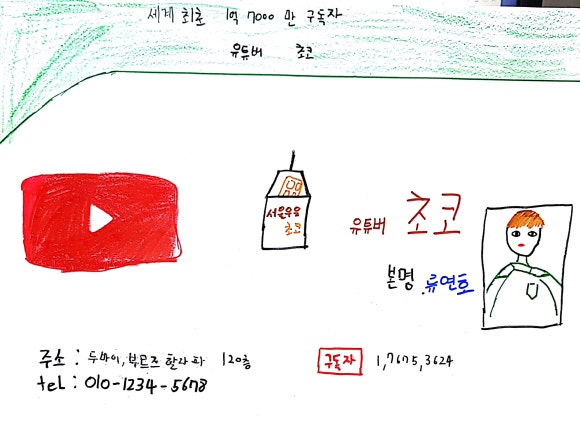 세계 최초 1억 7000 만 구독자
유튜버 초코
서울우유
초코
유튜버 초코
본명 류연호
주소 : 두바이, 부르즈 할리파 120층
tel : 010-1234-5678
구독자 1,7675,3624